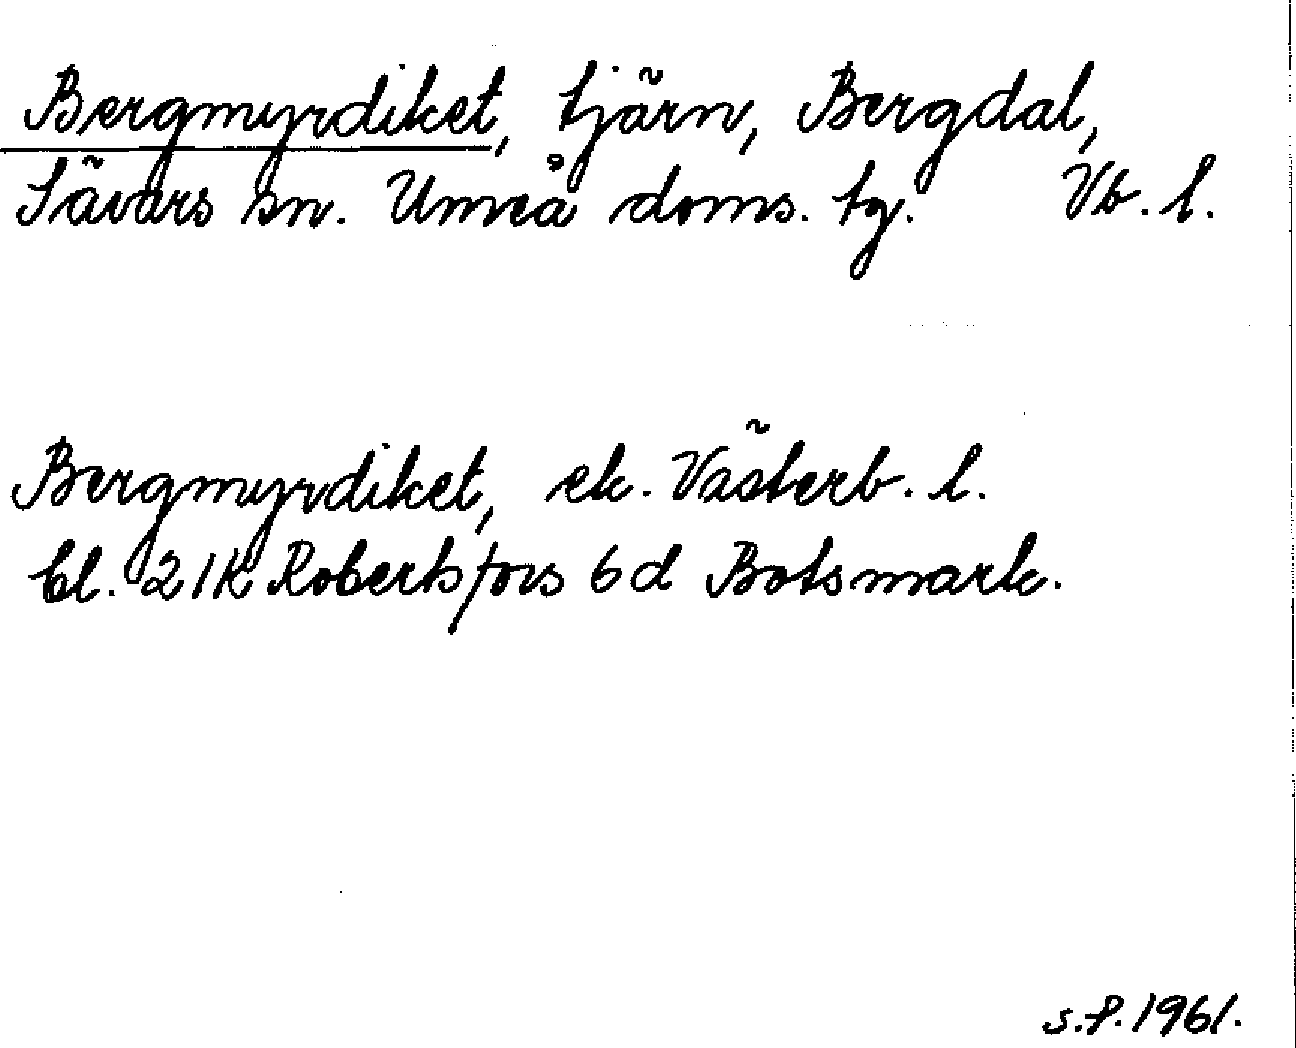 Bergmyrdiket, tjärn, Bergdal,
Sävars sn. Umeå doms. tg. Vb. l.
Bergmyrdiket, ek. Västerb. l.
bl. 21K Robertsfors 6d Botsmark.
s.f. 1961.